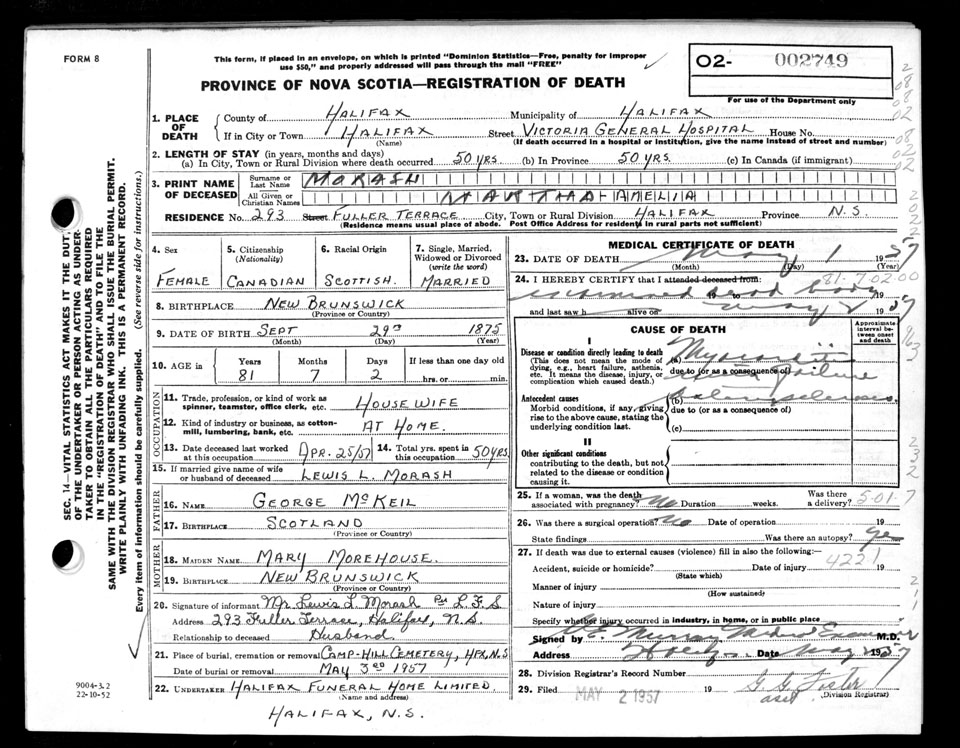 FORM 8
This form, if placed in an envelope, on which is printed "Dominion Statistics—Free, penalty for improper
use $50," and properly addressed will pass through the mail "FREE"
PROVINCE OF NOVA SCOTIA—REGISTRATION OF DEATH
02- 002749
For use of the Department only
1. PLACE OF DEATH
County of HALIFAX Municipality of HALIFAX
If in City or Town HALIFAX Street VICTORIA GENERAL HOSPITAL House No.
(Name) (If death occurred in a hospital or institution, give the name instead of street and number)
2. LENGTH OF STAY (in years, months and days)
(a) In City, Town or Rural Division where death occurred 50 YRS. (b) In Province 50 YRS. (c) In Canada (if immigrant)
3. PRINT NAME OF DECEASED
Surname or Last Name MORASH
All Given or Christian Names MARTHA AMELIA
RESIDENCE No. 293 Street FULLER TERRACE City, Town or Rural Division HALIFAX Province N.S.
(Residence means usual place of abode. Post Office Address for residents in rural parts not sufficient)
4. Sex FEMALE
5. Citizenship (Nationality) CANADIAN
6. Racial Origin SCOTTISH.
7. Single, Married, Widowed or Divorced (write the word) MARRIED
8. BIRTHPLACE NEW BRUNSWICK
(Province or Country)
9. DATE OF BIRTH SEPT 29 1875
(Month) (Day) (Year)
10. AGE in Years Months Days If less than one day old
81 7 2 hrs. or min.
OCCUPATION
11. Trade, profession, or kind of work as spinner, teamster, office clerk, etc. HOUSE WIFE
12. Kind of industry or business, as cotton-mill, lumbering, bank, etc. AT HOME.
13. Date deceased last worked at this occupation APR. 25/57
14. Total yrs. spent in this occupation 50 YRS.
15. If married give name of wife or husband of deceased LEWIS L. MORASH
FATHER
16. NAME GEORGE McKEIL
17. BIRTHPLACE SCOTLAND
(Province or Country)
MOTHER
18. MAIDEN NAME MARY MOREHOUSE.
19. BIRTHPLACE NEW BRUNSWICK
(Province or Country)
20. Signature of informant Mr. Lewis L. Morash Per L.F.S
Address 293 Fuller Terrace, Halifax, N.S.
Relationship to deceased Husband
21. Place of burial, cremation or removal CAMP-HILL CEMETERY, HFX, N.S
Date of burial or removal MAY 3RD 1957
22. UNDERTAKER HALIFAX FUNERAL HOME LIMITED.
(Name and address)
HALIFAX, N.S.
MEDICAL CERTIFICATE OF DEATH
23. DATE OF DEATH May 1 1957
(Month) (Day) (Year)
24. I HEREBY CERTIFY that I attended deceased from: 81-7-02.00
dead body 19 to
and last saw h alive on May 2 1957
CAUSE OF DEATH
Approximate interval between onset and death
I
Disease or condition directly leading to death
(This does not mean the mode of dying, e.g., heart failure, asthenia, etc. It means the disease, injury, or complication which caused death.)
(a)
due to (or as a consequence of) failure
Antecedent causes
Morbid conditions, if any, giving rise to the above cause, stating the underlying condition last.
(b)
due to (or as a consequence of)
(c)
II
Other significant conditions
contributing to the death, but not related to the disease or condition causing it.
25. If a woman, was the death associated with pregnancy? No Duration weeks. Was there a delivery? 5-01-7
26. Was there a surgical operation? No Date of operation 19
State findings Was there an autopsy? Yes
27. If death was due to external causes (violence) fill in also the following:—
Accident, suicide or homicide? Date of injury 19
(State which) 4221
Manner of injury
(How sustained)
Nature of injury
Specify whether injury occurred in industry, in home, or in public place
Signed by Murray Medical Examiner M.D.
Address Date May 1957
28. Division Registrar's Record Number
29. Filed MAY 2 1957 19 Foster
(Division Registrar)
SEC. 14—VITAL STATISTICS ACT MAKES IT THE DUTY
OF THE UNDERTAKER OR PERSON ACTING AS UNDER-
TAKER TO OBTAIN ALL THE PARTICULARS REQUIRED
IN THE "REGISTRATION OF DEATH" AND TO FILE THE
SAME WITH THE DIVISION REGISTRAR WHO SHALL ISSUE THE BURIAL PERMIT.
WRITE PLAINLY WITH UNFADING INK. THIS IS A PERMANENT RECORD.
Every item of information should be carefully supplied. (See reverse side for instructions.)
9004-3.2
22-10-52